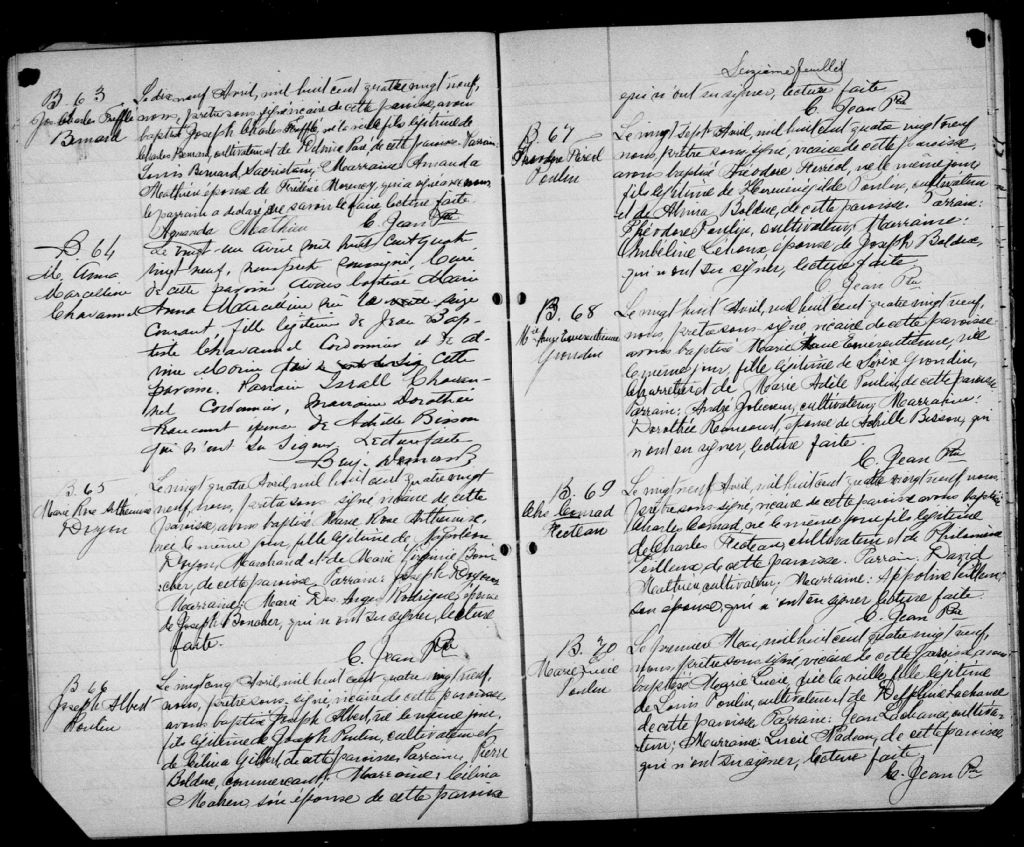 B. 63
Jos Charles Treffle
Bernard
Le dix neuf Avril, mil huit cent quatre vingt neuf,
nous, prêtre sous signé vicaire de cette paroisse, avons
baptisé Joseph Charles Trefflé, né la veille fils légitime de
Charles Bernard, cultivateur et de de cette paroisse. Parrain:
Louis Bernard, Sacristain; Marraine Amanda
Mathieu épouse de qui a signé avec nous
le parrain a déclaré ne savoir le faire lecture faite.
Amanda Mathieu
C. Jean Ptre
B 64
M. Anna
Marcelline
Chavannel
Le vingt-un avril mil huit cent quatre
vingt neuf, nous prêtre soussigné Curé
de cette paroisse avons baptisé Marie
Anna Marcelline née le seize
Courant fille légitime de Jean Bap
tiste Chavannel Cordonnier et de
Morin cette
paroisse. Parrain Israll Chavan-
nel Cordonnier, marraine Dorothée
Rancourt épouse de Achille Bisson
qui n'ont su signer, Lecture faite
Benj. Demers Ptre
B. 65
Marie Rose Arthemise
Doyon
Le vingt quatre Avril, mil huit cent quatre vingt
neuf, nous, prêtre sous signé vicaire de cette
paroisse avons baptisé Marie Rose Arthemise,
née le même jour, fille légitime de Napoléon
Doyon, Marchand et de Marie Virginie Bou
cher, de cette paroisse Parrain: Joseph Doyon
Marraine: Marie Des Anges Rodrigue, épouse
de Joseph Boucher, qui n'ont su signer, lecture
faite.
C. Jean Ptre
B. 66
Joseph Albert
Poulin
Le vingt cinq Avril, mil huit cent quatre vingt neuf,
nous, prêtre sous signé, vicaire de cette paroisse
avons baptisé Joseph Albert, né le même jour,
fils légitime de Joseph Poulin, cultivateur et
de Célina Gilbert, de cette paroisse, Parrain: Pierre
Bolduc, commerçant; Marraine: Célina
Maheu, son épouse de cette paroisse
Seizième feuillet
qui n'ont su signer, lecture faite
C. Jean Ptre
B. 67
Théodore Héréol
Poulin
Le vingt sept Avril, mil huit cent quatre vingt neuf
nous, prêtre sous signé, vicaire de cette paroisse,
avons baptisé Théodore Héréol, né le même jour
fils légitime de Herménégilde Poulin, cultivateur
et de Alvina Bolduc, de cette paroisse. Parrain:
Théodore Poulin, cultivateur; Marraine:
Ombéline Lehoux, épouse de Joseph Bolduc,
qui n'ont su signer, lecture faite
C. Jean Ptre
B. 68
Grondin
Le vingt huit Avril, mil huit cent quatre vingt neuf,
nous, prêtre sous signé, vicaire de cette paroisse
avons baptisé Marie née
le même jour, fille légitime de Grondin,
charretier et de Marie Adèle Poulin, de cette paroisse
Parrain: André Jolicoeur, cultivateur; Marraine:
Dorothée Rancourt, épouse de Achille Bisson, qui
n'ont su signer, lecture faite.
C. Jean Ptre
B. 69
Chs Conrad
Fecteau
Le vingt neuf Avril, mil huit cent quatre vingt neuf, nous,
prêtre sous signé, vicaire de cette paroisse avons baptisé
Charles Conrad, né le même jour fils légitime
de Charles Fecteau, cultivateur et de Philomène
Veilleux de cette paroisse. Parrain: David
Mathieu cultivateur; Marraine: Appoline Veilleux,
son épouse, qui n'ont su signer lecture faite.
C. Jean Ptre
B. 70
Marie Lucie
Poulin
Le premier Mai, mil huit cent quatre vingt neuf,
nous, prêtre sous signé, vicaire de cette paroisse, avons
baptisé Marie Lucie, née la veille, fille légitime
de Louis Poulin, cultivateur et de Delphine Lachance
de cette paroisse Parrain: Jean Lachance, cultiva-
teur; Marraine: Lucie Nadeau, de cette paroisse
qui n'ont su signer, lecture faite
C. Jean Ptre